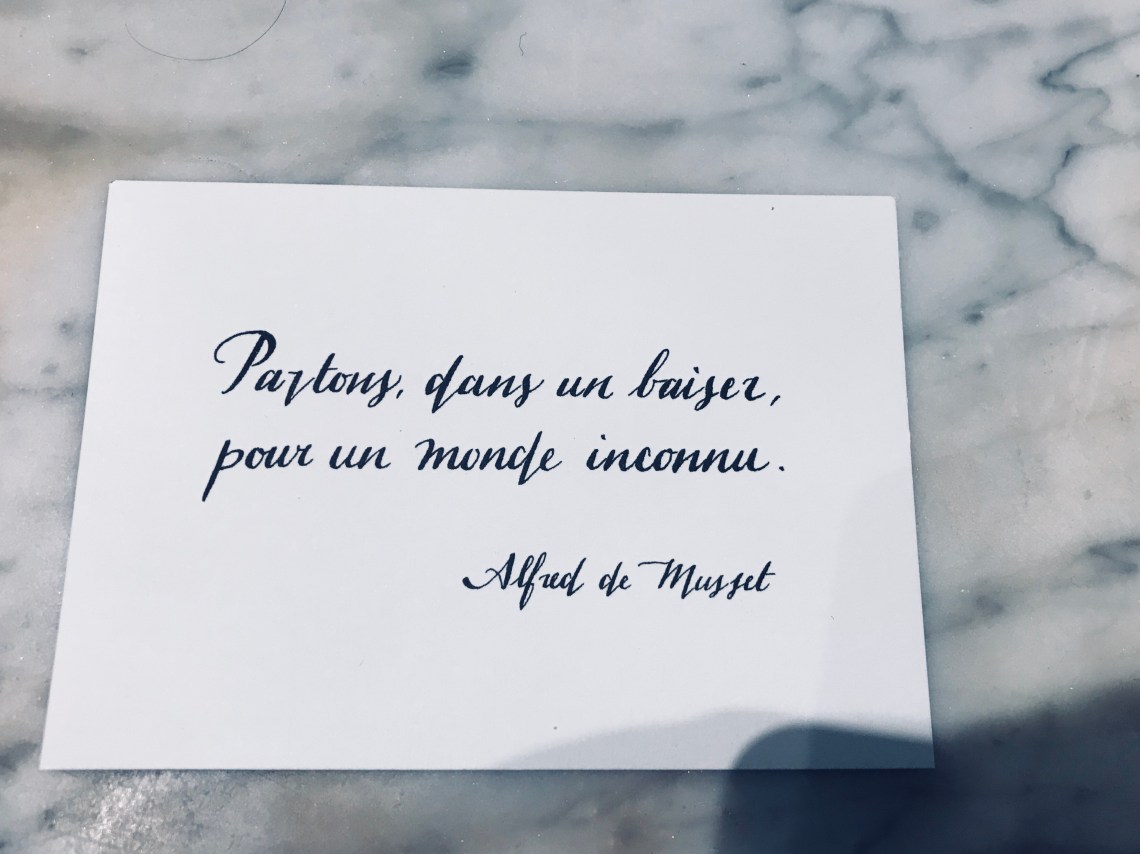 Partons, dans un baiser,
pour un monde inconnu.
Alfred de Musset